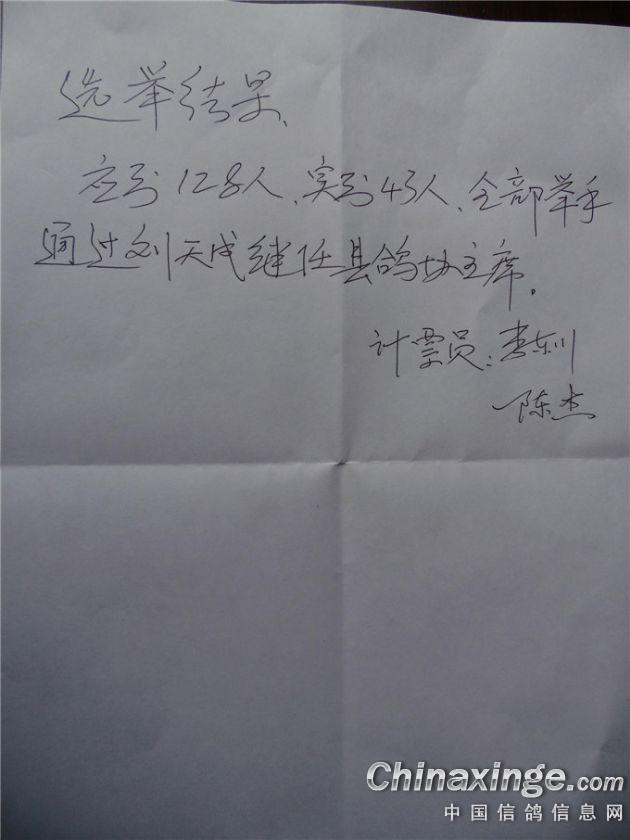 选举结果、
应到128人、实到43人、全部举手
通过刘天成继任县鸽协主席。
计票员:李东川
陈杰
Chinaxinge.com
中国信鸽信息网